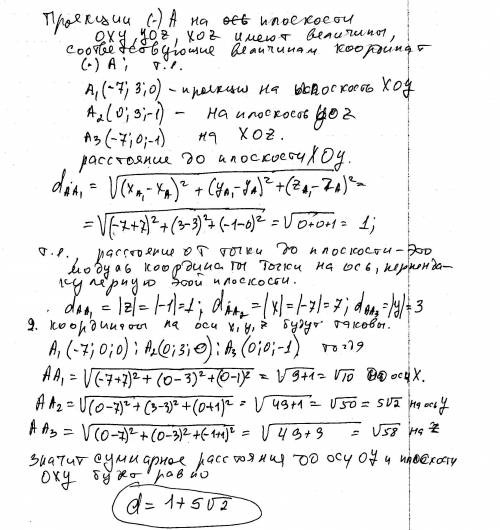 Проекции (·) A на плоскости
OXY, YOZ, XOZ имеют величины,
соответствующие величинам координат
(·) A; т.е.
A₁(-7; 3; 0) - проекция на плоскость XOY
A₂(0; 3; -1) - на плоскость YOZ
A₃(-7; 0; -1) на XOZ.
расстояние до плоскости XOY.
d_AA₁ = √((x_A₁-x_A)² + (y_A₁-y_A)² + (z_A₁-z_A)²) =
= √((-7+7)² + (3-3)² + (-1-0)²) = √0+0+1 = 1;
т.е. расстояние от точки до плоскости - это
модуль координаты точки на ось, перпенди-
кулярную этой плоскости.
d_AA₁ = |z| = |-1| = 1; d_AA₂ = |x| = |-7| = 7; d_AA₃ = |y| = 3
2. координаты на оси x, y, z будут таковы.
A₁(-7; 0; 0); A₂(0; 3; 0); A₃(0; 0; -1) тогда
AA₁ = √((-7+7)² + (0-3)² + (0-1)²) = √9+1 = √10 до оси X.
AA₂ = √((0-7)² + (3-3)² + (0+1)²) = √49+1 = √50 = 5√2 на ось y
AA₃ = √((0-7)² + (0-3)² + (-1+1)²) = √49+9 = √58 на z
значит суммарное расстояния до оси OY и плоскости
OXY будет равно
d = 1 + 5√2